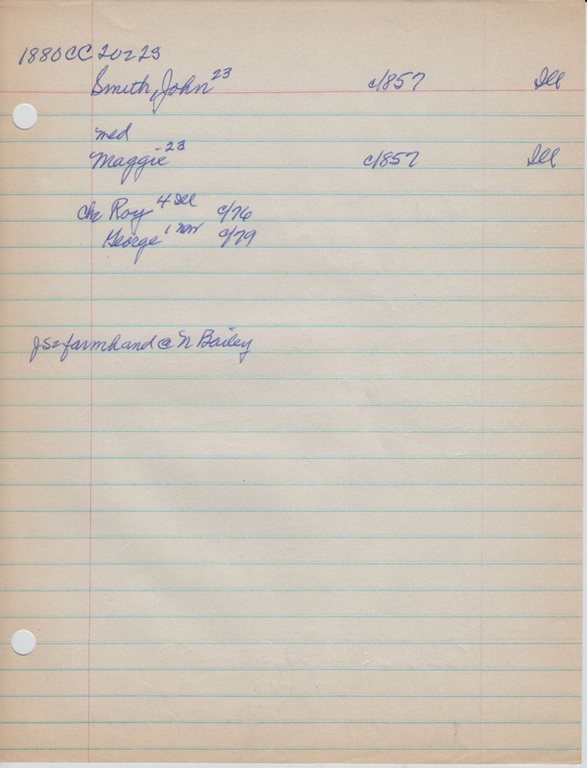 1880CC 20=23
Smith, John 23 c/857 Ill
med
Maggie 23 c/857 Ill
Ch Roy 4 Ill c/76
George 1 c/79
JS=farmhand @ N Bailey